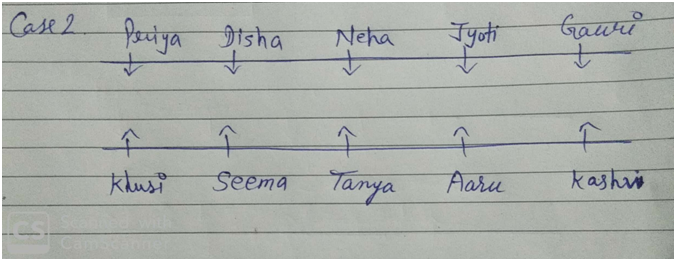 Case 2. Periya Disha Neha Jyoti Gauri
Khusi Seema Tanya Aaru Kashvi
CS Scanned with
CamScanner